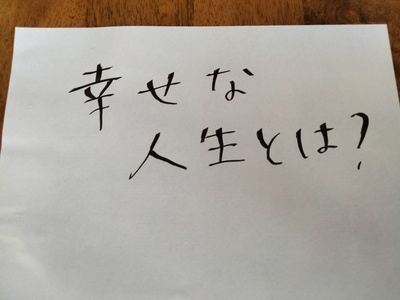 幸せな
人生とは?